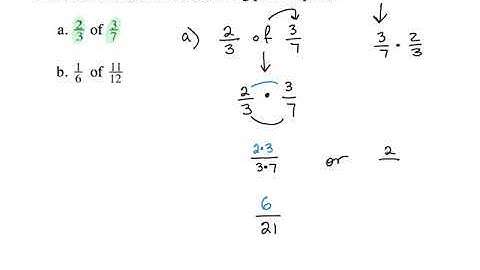 a. 2/3 of 3/7
b. 1/6 of 11/12
a) 2/3 of 3/7
3/7 · 2/3
2/3 · 3/7
2·3/3·7 or 2/
6/21